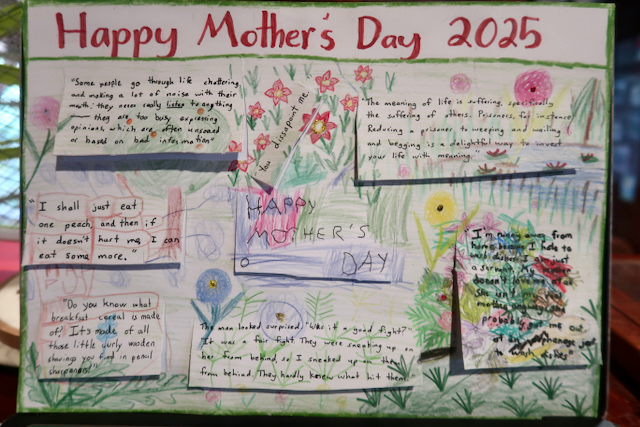 Happy Mother's Day 2025
"Some people go through life chattering
and making a lot of noise with their
mouth; they never really listen to anything
— they are too busy expressing
opinions, which are often unsound
or based on bad information"
You dissapoint me.
"The meaning of life is suffering, specifically
the suffering of others. Prisoners, for instance.
Reducing a prisoner to weeping and wailing
and begging is a delightful way to invest
your life with meaning."
"I shall just eat
one peach, and then if
it doesn't hurt me, I can
eat some more."
HAPPY
MOTHER'S
DAY
"I'm running away from
home because I hate to
wash dishes. I am just
a servant. My mother
doesn't love me
"Do you know what
breakfast cereal is made
of? It's made of all
those little curly wooden
shavings you find in pencil
sharpeners!"
The man looked surprised. "Was it a good fight?"
It was a fair fight. They were sneaking up on
her from behind, so I sneaked up on them
from behind. They hardly knew what hit them."
probably put me out
to wash dishes"